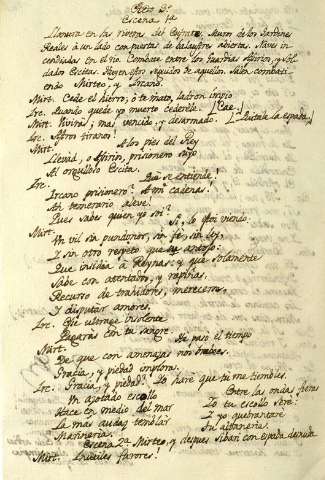 Acto 3º
Escena 1ª
Llanura en la rivera del Eufrate. Muros de los Jardines
Reales à un lado con puertas de balaustres abiertas. Naves in-
cendiadas en el rio. Combate entre los Guardias Asirios, y Sol-
dados Escitas. Huyen estos seguidos de aquellos. Salen combati-
endo Mirteo, y Ircano.
Mirt. Cede el hierro, ò te mato, ladron impio
Irc. Quando quede yo muerto cederèle. (Cae.)
Mirt. Vivirà, mal, vencido, y desarmado. (Quitale la espada)
Irc. Astros tiranos!
Mirt. A los pies del Rey
Llevad, o Asirios, prisionero suyo
Al orgulloso Escita.
Irc. Que se entiende!
Ircano prisionero? A mi cadenas!
Ah temerario aleve!
Pues sabe quien yo soi?
Mirt. Si, lo estoi viendo.
Un vil sin pundonor, sin fe, sin ley,
Y sin otro respeto que su antojo:
Que insidia à Reynas, y que solamente
Sabe con atentados, y rapiñas,
Recurso de traidores, merecerse,
Y disputar amores.
Irc. Este ultraje insolente
Pagaràs con tu sangre.
Mirt. Ya pasò el tiempo
De que con amenazas nos
Gracia, y piedad implora.
Irc. Gracia, y piedad? Lo harè que tù me tiembles.
Un agotado escollo
Hace en medio del mar
La mas audaz temblar
Marineria.
Entre las ondas fieras
Yo tu escollo serè:
I yo quebrantarè
Tu altaneria.
Escena 2ª Mirteo, y despues Sibari con espada desnuda
Mirt. Inutiles furores!